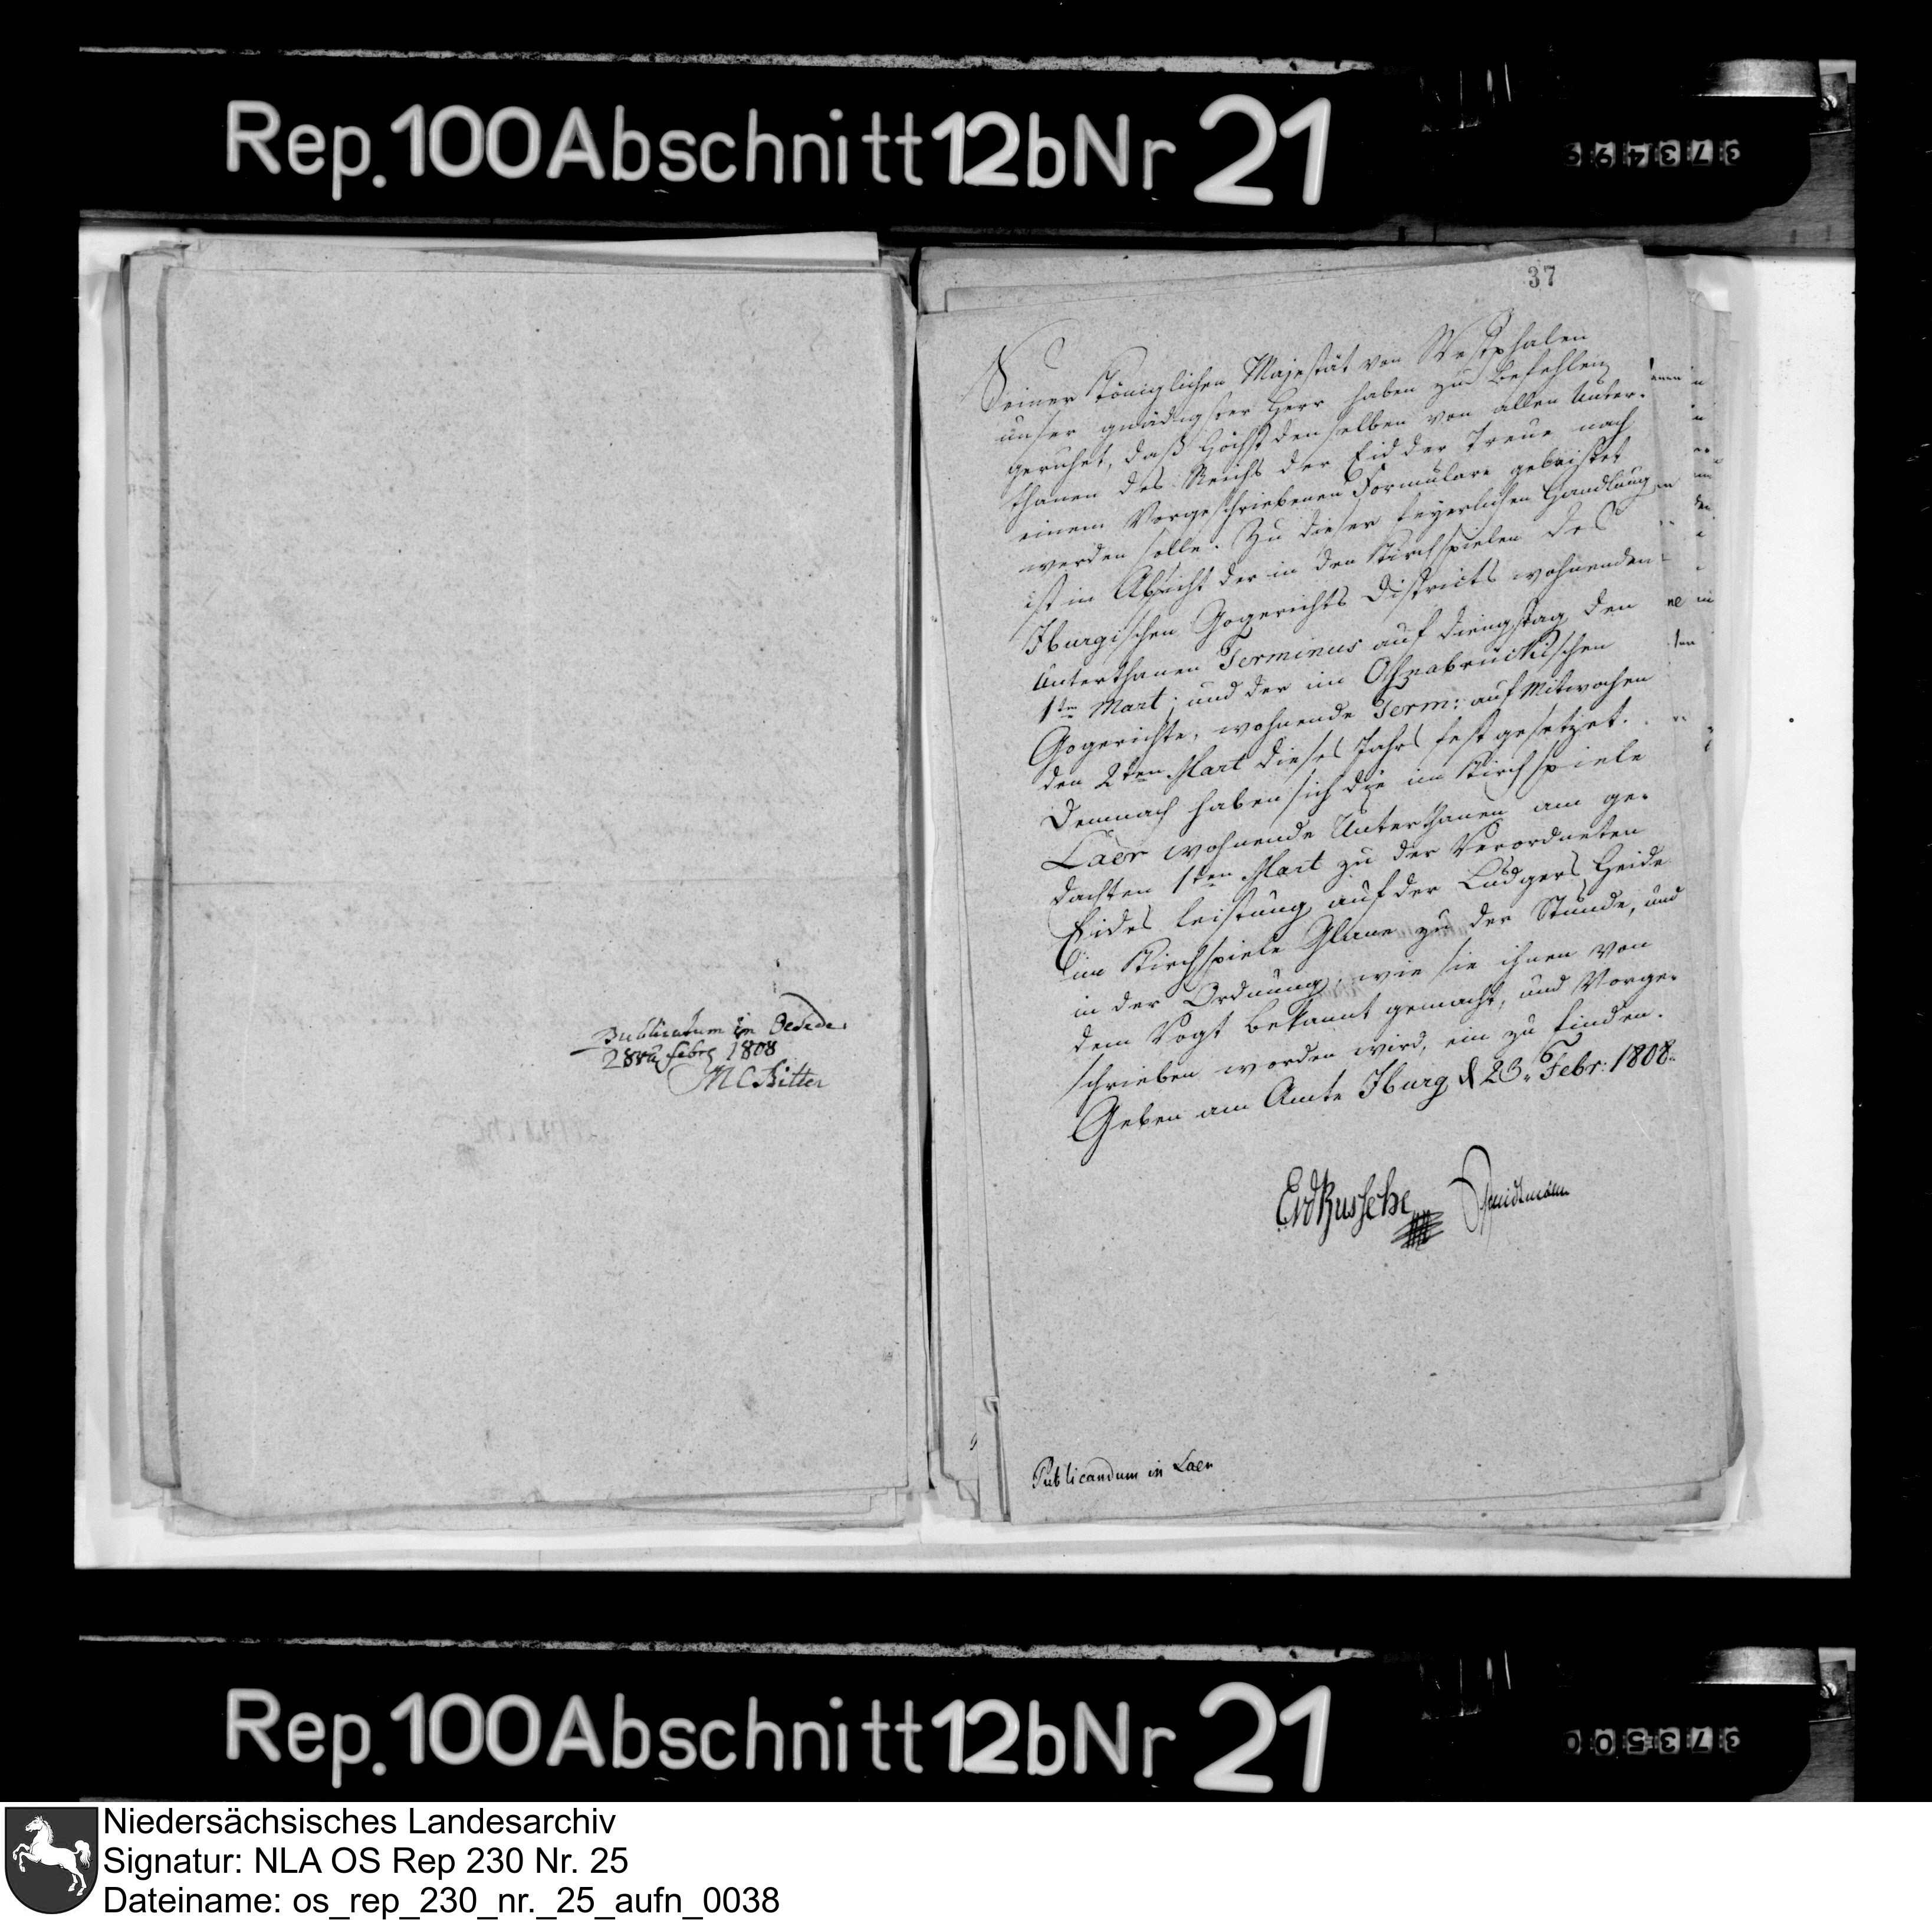 Rep. 100 Abschnitt 12b Nr 21
373499
Publicatum in Oesede
28ten Febr 1808
M C Ritter
37
Seiner Königlichen Majestät von Westphalen
unser gnädigster Herr haben zu befehlen
geruhet, daß Höchstdenselben von allen Unter-
thanen des Reichs der Eid der Treue nach
einem Vorgeschriebenen Formulare geleistet
werden solle. Zu dieser feyerlichen Handlung
ist in Absicht der in den Kirchspielen des
Iburgischen Gogerichts Districts wohnenden
Unterthanen Terminus auf Diengstag den
1ten Mart; und der im Oßnabrückischen
Gogerichte, wohnende Term: auf Mitwochen
den 2ten Mart dieses Jahrs fest gesetzet.
Demnach haben sich die im Kirchspiele
Laer wohnende Unterthanen am ge-
dachten 1ten Mart zu der Verordneten
Eides leistung auf der Lüdgers Heide
im Kirchspiele Glane zu der Stunde, und
in der Ordnung, wie sie ihnen von
dem Vogt bekannt gemacht, und Vorge-
schrieben worden wird, ein zu finden.
Geben am Amte Iburg d 23. Febr: 1808.
EvdBussche
Publicandum in Laer
Rep. 100 Abschnitt 12b Nr 21
373500
Niedersächsisches Landesarchiv
Signatur: NLA OS Rep 230 Nr. 25
Dateiname: os_rep_230_nr._25_aufn_0038